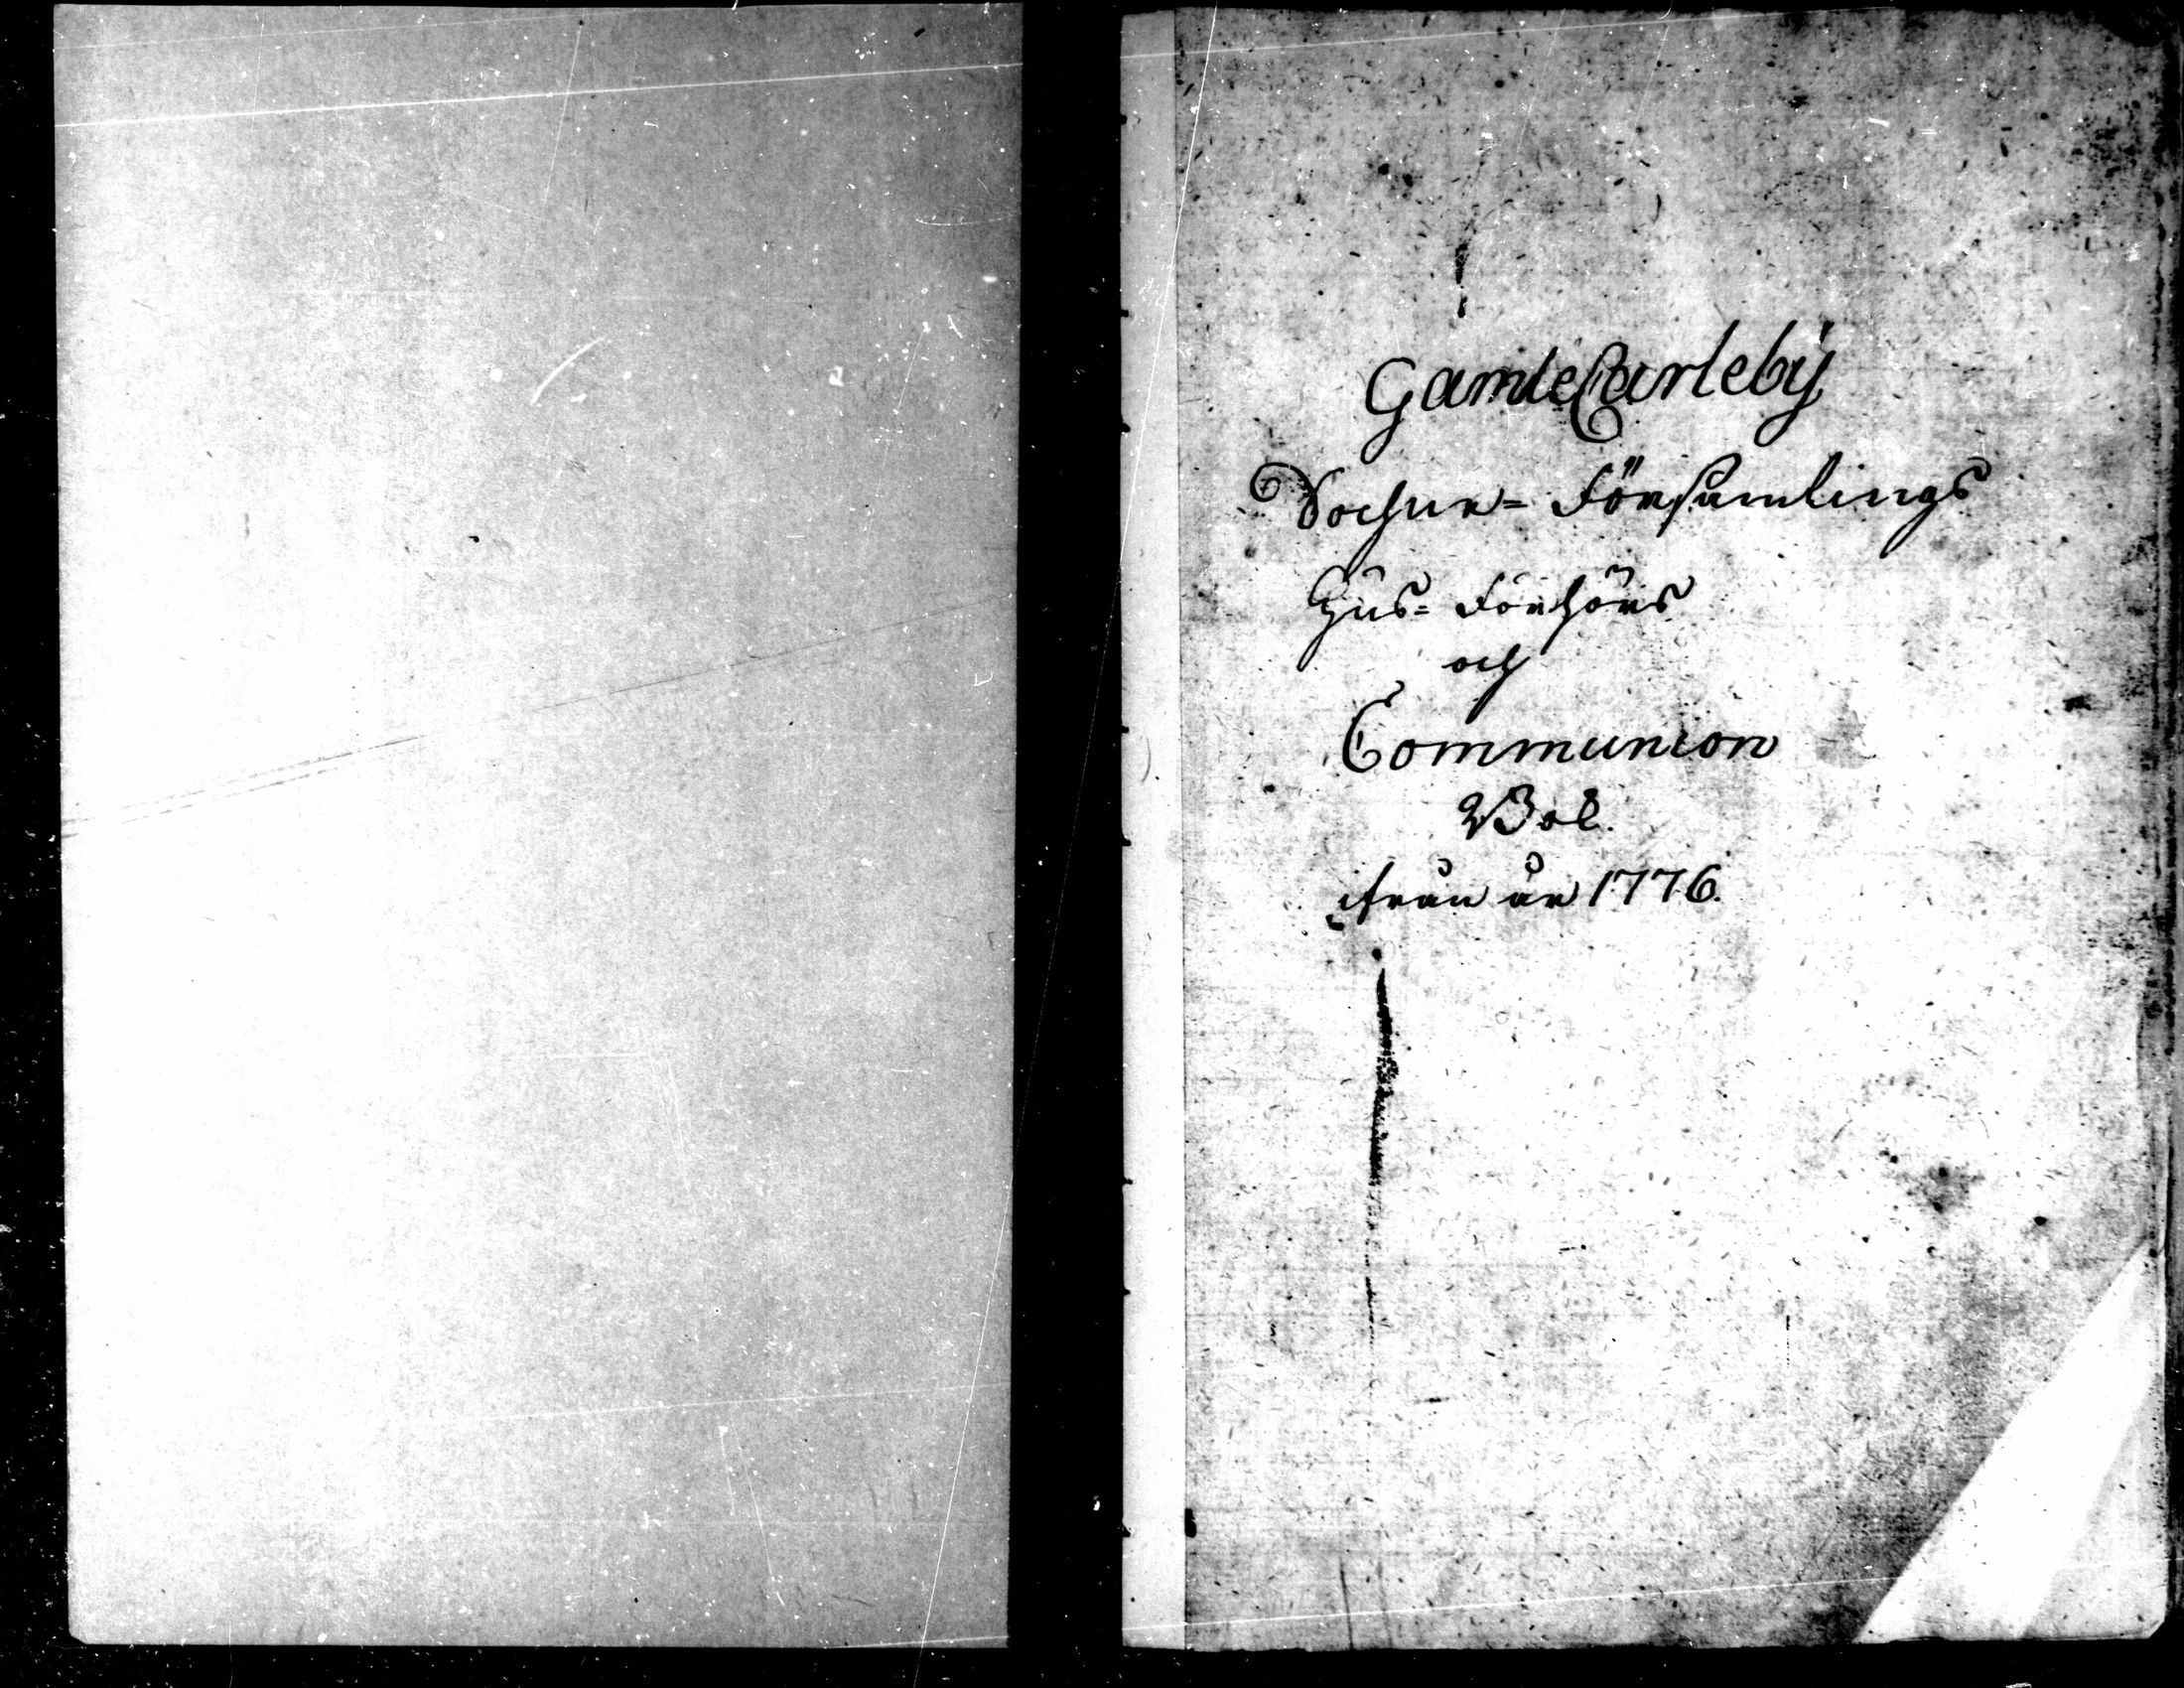 GamleCarleby
Sochne= Församlings
Hus= Förhörs
och
Communion
Bok
ifrån år 1776.